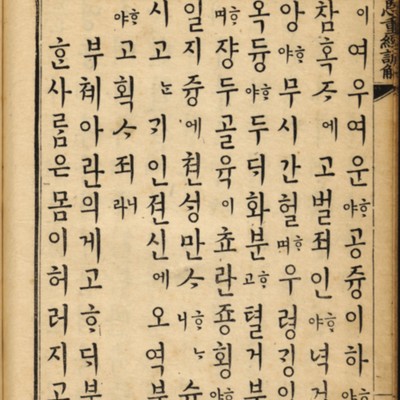 重經諺解
이여우여운ᄒᆞ야공듕이하ᄒᆞ야
참혹ᄌᆞ에고벌죄인ᄒᆞ야녁거
앙ᄒᆞ야무시간헐ᄒᆞ며우령깅이
옥듕ᄒᆞ야두ᄃᆡ화분ᄒᆞ고텰거부
ᄒᆞ며쟝두골육이쵸란죵횡ᄒᆞ야
일지듕에쳔셩만ᄉᆞᄒᆞᄂᆞ니슈
시고ᄂᆞᆫ기인젼신에오역부
ᄒᆞ야고획ᄉᆞ죄니라
부쳬아란의게고ᄒᆞᄃᆡ부
ᄒᆞᆫ사ᄅᆞᆷ은몸이허러지고